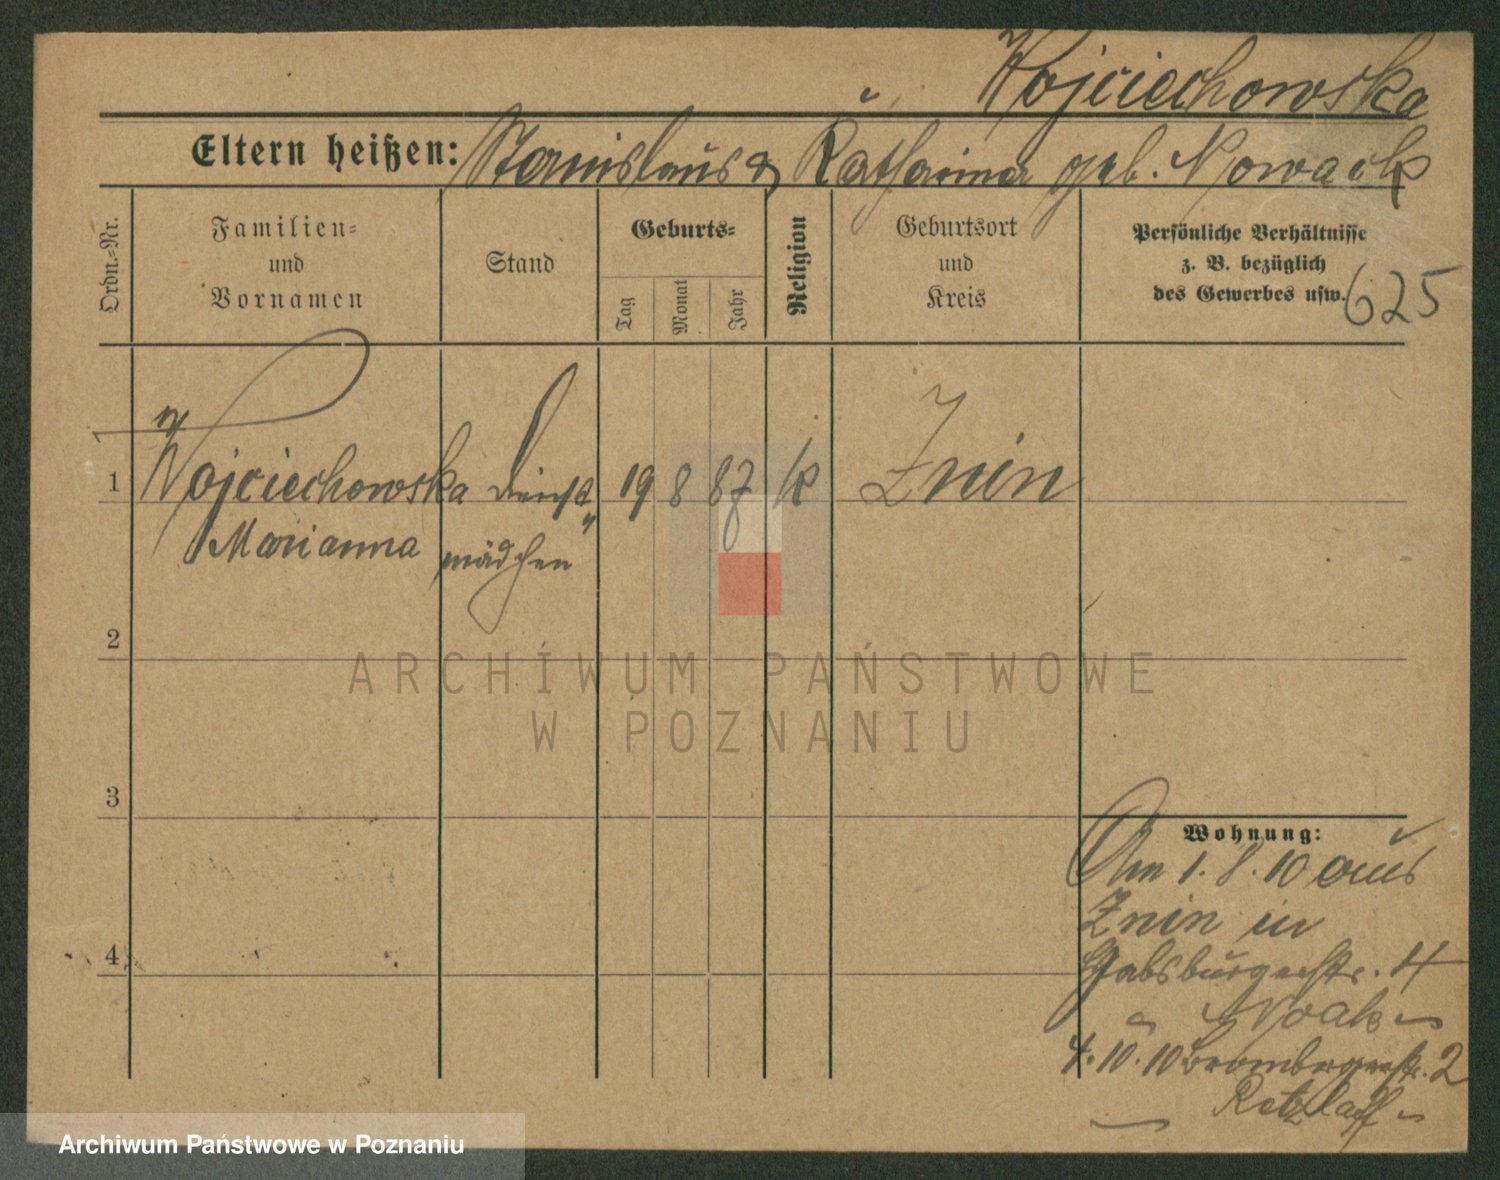 Wojciechowska
Eltern heißen: Stanislaus & Katharina geb. Nowack
Ordn.-Nr.
Familien-
und
Vornamen
Stand
Geburts-
Tag
Monat
Jahr
Religion
Geburtsort
und
Kreis
Persönliche Verhältnisse
z. B. bezüglich
des Gewerbes usw.
625
1 Wojciechowska Dienst 19 8 87 k Znin
Marianna mädchen
2
3
4
Wohnung:
Am 1. 8. 10 aus
Znin in
Habsburgerstr. 4
Noak
4. 10. 10 Brombergerstr. 2
Retzlaff
ARCHIWUM PAŃSTWOWE
W POZNANIU
Archiwum Państwowe w Poznaniu